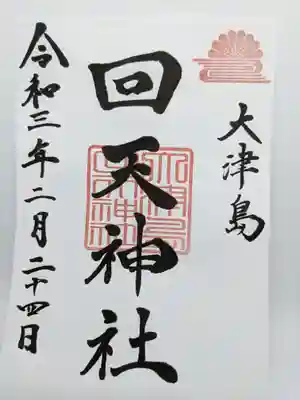 大津島
回天神社
令和三年二月二十四日